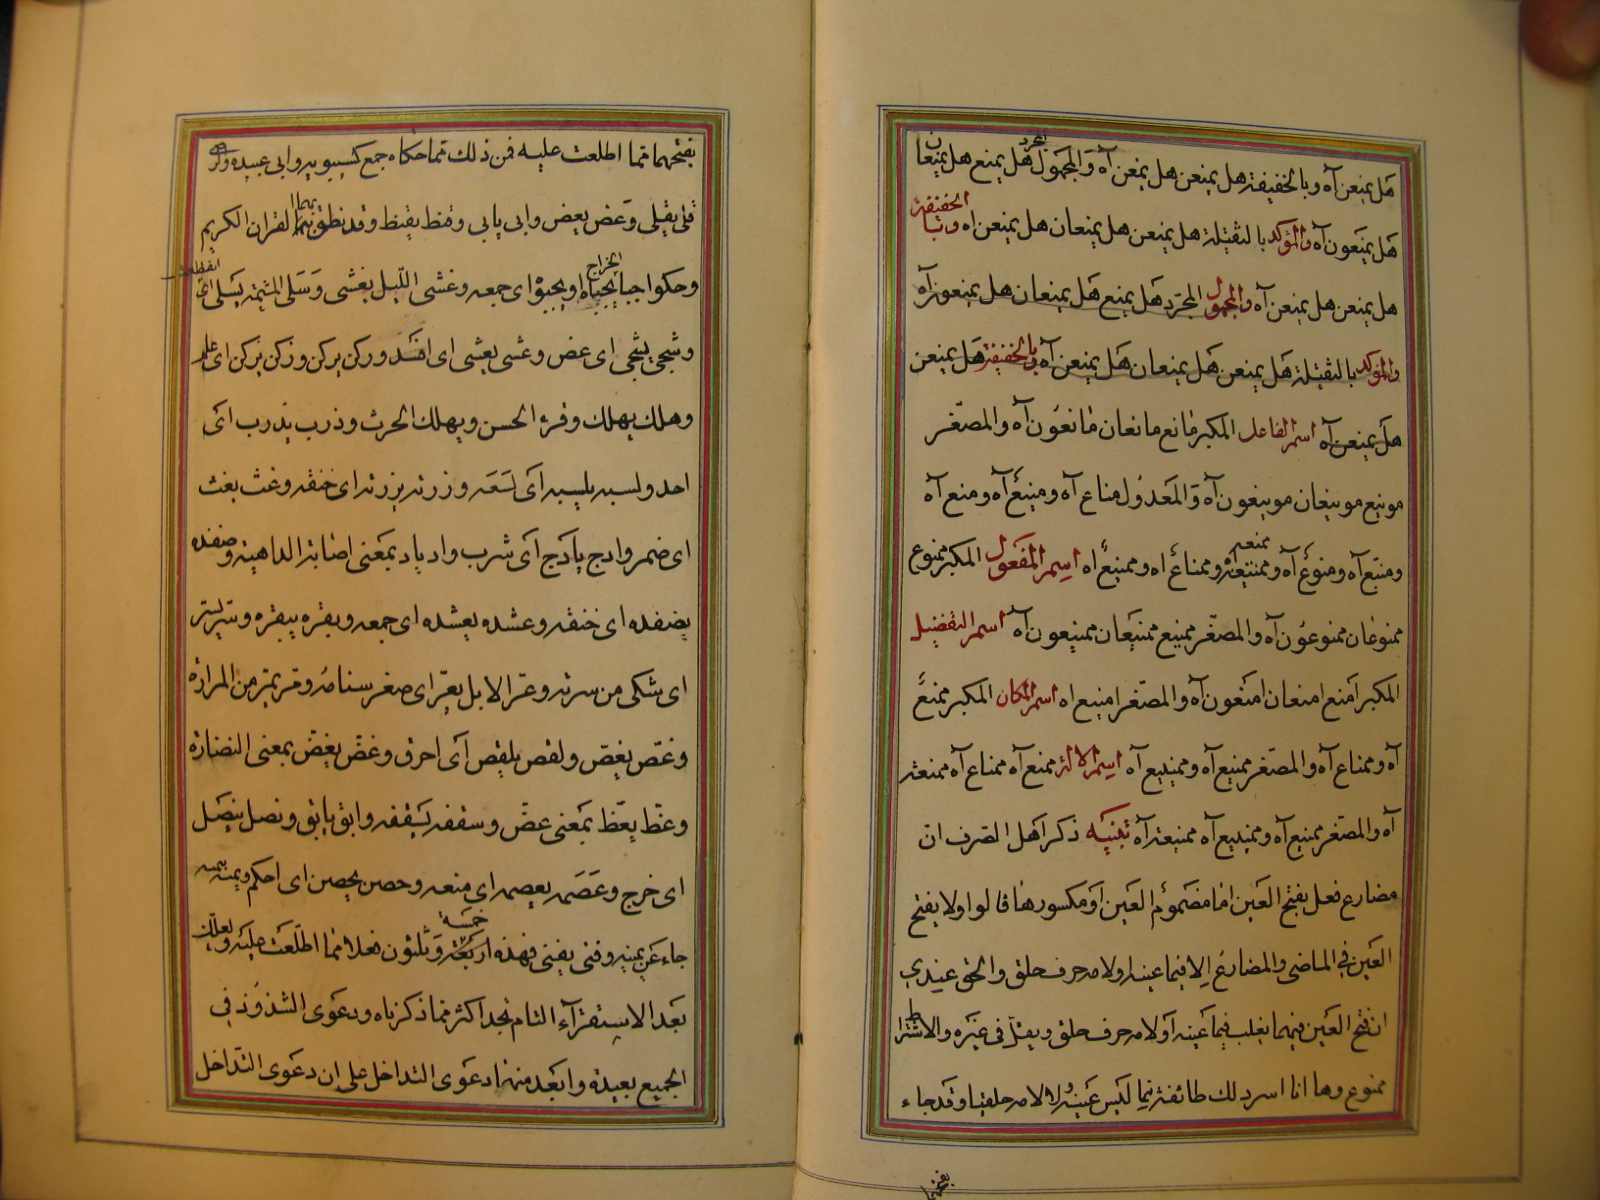 هل يمنعن آه وبالخفيفة هل يمنعن هل يمنعن آه والمجهول المجرد هل يمنع هل يمنعان
هل يمنعون آه والمؤكد بالثقيلة هل يمنعن هل يمنعان هل يمنعن اه وبالخفيفة
هل يمنعن هل يمنعن آه والمجهول المجرّد هل يمنع هل يمنعان هل يمنعون آه
والمؤكد بالثقيلة هل يمنعن هل يمنعان هل يمنعن آه وبالخفيفة هل يمنعن
هل يمنعن آه اسم الفاعل المكبر مانع مانعان مانعون آه والمصغّر
موينع موينعان موينعون آه والمعدول مناع آه ومنيع آه ومنع آه
ومنع آه ومنوع آه وممنعة وممناع اه وممنيع اه اسم المفعول المكبر ممنوع
ممنوعان ممنوعون آه والمصغّر ممينع ممينعان ممينعون آه اسم التفضيل
المكبر امنع امنعان امنعون آه والمصغر امينع اه اسم المكان المكبر ممنع
آه وممناع آه والمصغر ممينع آه وممينيع آه اسم الآلة ممنع آه ممناع آه ممنعة
آه والمصغر ممينع آه وممينيع آه ممينعة آه تنبيه ذكر اهل الصرف ان
مضارع فعل بفتح العين اما مضموم العين او مكسورها قالوا ولا يفتح
العين في الماضي والمضارع الا فيما عينه او لامه حرف حلق والحق عندي
ان فتح العين فيهما يغلب فيما عينه او لامه حرف حلق ويقل في غيره والاشتراط
ممنوع وها انا اسرد لك طائفة مما ليس عينه ولا لامه حلقيا وقد جاء
بفتحهما
بفتحهما مما اطلعت عليه فمن ذلك مما حكاه جمع كسيبويه وابي عبيدة
قلى يقلى وعض يعض وابى يابى وقنط يقنط وقد نطق بهما القران الكريم
وحكوا جبا يجباه الخراج او يجبوا اى جمعه وغشى الليل يغشى وسلى المشيمة يسلى اى انقطعت
وشجى يشجى اى عض وعثى يعثى اى افسد وركن يركن وزكن يزكن اى علم
وهلك يهلك وقرء الحسن ويهلك الحرث وذرب يذرب اى
احد ولسبه يلسبه اى لسعه وزرته يزرته اى خنقه وغث يغث
اى ضمر وادج يادج اى شرب واد ياد بمعنى اصابة الداهية وضفده
يضفده اى خنقه وعشده يعشده اى جمعه وبقره يبقره وستر يستر
اى شكى من سرته وعر الابل يعر اى صغر سنامه ومر يمر من المرارة
وغص يغص ولقص يلقص اى احرق وغض يغض بمعنى النضارة
وعظ يعظ بمعنى عض وسقفه يسقفه وابق يابق ونصل ينصل
اى خرج وعصمه يعصمه اى منعه وحصن يحصن اى احكم ويمنه يمنه
جاء عن يمينه وفنى يفنى فهذه خمسة وثلثون فعلا مما اطلعت عليه ولعلك
بعد الاستقراء التام تجد اكثر مما ذكرناه ودعوى الشذوذ في
الجميع بعيدة وابعد منها دعوى التداخل على ان دعوى التداخل